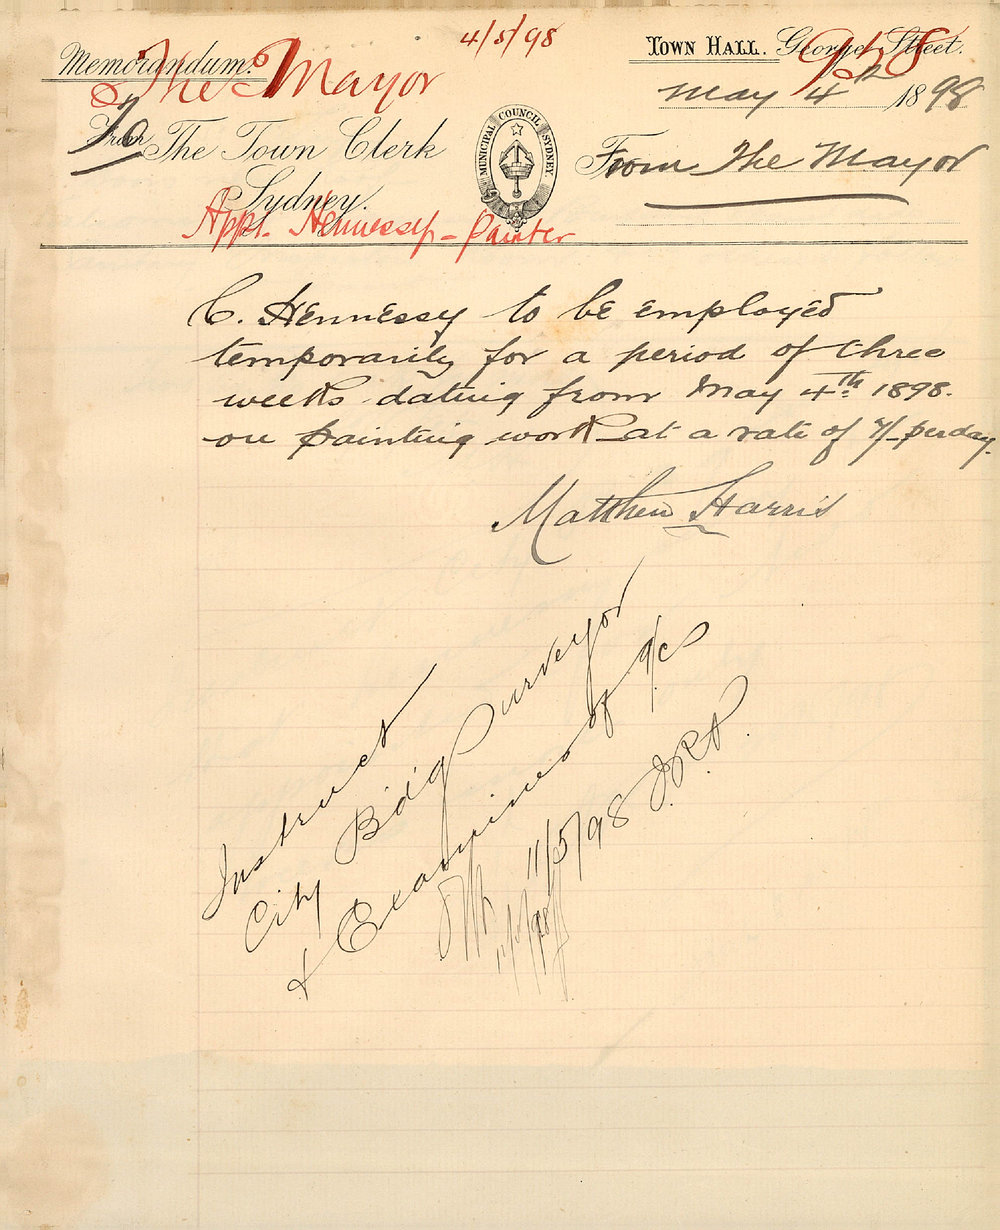 4/5/98
Memorandum. Town Hall. George Street.
The Mayor 958
May 4th 1898
To From The Town Clerk
Sydney.
MUNICIPAL COUNCIL SYDNEY
From The Mayor
Appt. Hennessy - Painter
C. Hennessy to be employed
temporarily for a period of three
weeks dating from May 4th. 1898.
on painting work at a rate of 7/- per day.
Matthew Harris
Instruct
City Bd'g Surveyor
& Examiner of a/cs
11/5/98